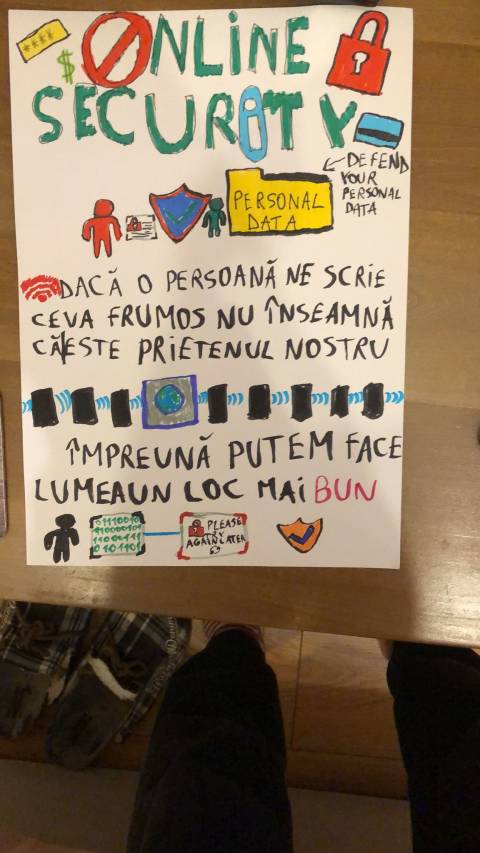 ****
$
ONLINE
SECURITY
DEFEND
YOUR
PERSONAL
DATA
PERSONAL
DATA
DACĂ O PERSOANĂ NE SCRIE
CEVA FRUMOS NU ÎNSEAMNĂ
CĂ ESTE PRIETENUL NOSTRU
ÎMPREUNĂ PUTEM FACE
LUMEA UN LOC MAI BUN
01110010
11000010
11001111
0101101
PLEASE
TRY
AGAIN LATER